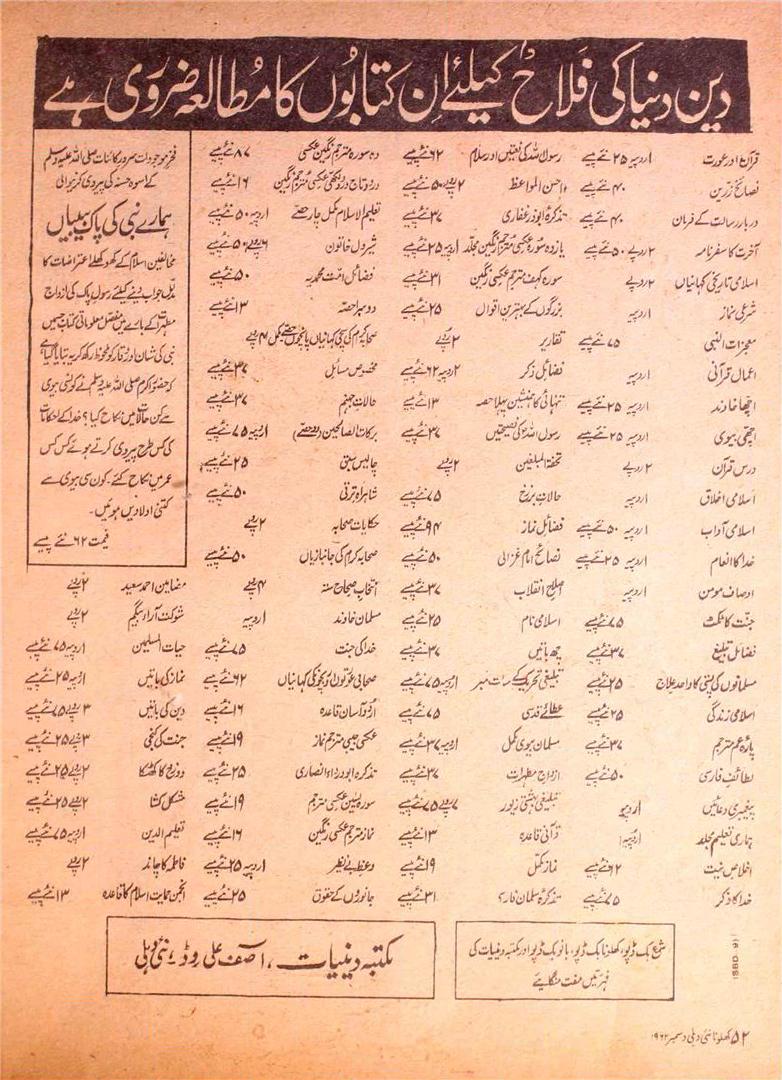 دین دنیا کی فلاح کیلئے اِن کتابوں کا مُطالعہ ضروری ہے
قرآن اور عورت ۱ روپیہ ۲۵ نئے پیسے
نصائح زریں ۴۰ نئے پیسے
دربار رسالت کے فرمان ۴۰ نئے پیسے
آخرت کا سفرنامہ ۲ روپے ۵۰ نئے پیسے
اسلامی تاریخی کہانیاں ۲ روپے
شرعی نماز ۱ روپیہ
معجزات النبی ۷۵ نئے پیسے
اعمال قرآنی ۱ روپیہ
اچھا خاوند ۱ روپیہ ۲۵ نئے پیسے
اچھی بیوی ۱ روپیہ ۲۵ نئے پیسے
درس قرآن ۲ روپے
اسلامی اخلاق ۱ روپیہ
اسلامی آداب ۱ روپیہ ۵۰ نئے پیسے
خدا کا انعام ۱ روپیہ ۲۵ نئے پیسے
اوصاف مومن ۱ روپیہ
جنّت کا ٹکٹ ۷۵ نئے پیسے
فضائل تبلیغ ۳۷ نئے پیسے
مسلمانوں کی پستی کا واحد علاج ۲۵ نئے پیسے
اسلامی زندگی ۲۵ نئے پیسے
پارہ عم مترجم ۳۷ نئے پیسے
لطائف فارسی ۵۰ نئے پیسے
پیغمبری دعائیں ۱ روپیہ
ہماری تعلیم مجلد ۱ روپیہ
اخلاص نیت ۶۲ نئے پیسے
خدا کا ذکر ۷۵ نئے پیسے
رسول اللہ کی نعتیں اور سلام ۶۲ نئے پیسے
احسن المواعظ ۲ روپے ۵۰ نئے پیسے
تذکرہ ابوذر غفاری ۳۷ نئے پیسے
یازدہ سورہ عکسی مترجم رنگین مجلد ۱ روپیہ ۲۵ نئے پیسے
سورہ کہف مترجم عکسی رنگین ۳۱ نئے پیسے
بزرگوں کے بہترین اقوال ۲۵ نئے پیسے
تقاریر ۲ روپے
فضائل ذکر ۲ روپیہ ۶۲ نئے پیسے
تنہائی کا ہمنشین پہلا حصہ ۱۳ نئے پیسے
رسول اللہ کی نصیحتیں ۳۷ نئے پیسے
تحفۃ المبلغین ۲ روپے
حالات برزخ ۷۵ نئے پیسے
فضائل نماز ۹۴ نئے پیسے
نصائح امام غزالی ۵۰ نئے پیسے
اصلاح انقلاب ۳۷ نئے پیسے
اسلامی نام ۲۵ نئے پیسے
چھ باتیں ۳۷ نئے پیسے
تبلیغی تحریک کے سات نمبر ۱ روپیہ ۷۵ نئے پیسے
عطائے قدسی ۷۵ نئے پیسے
مسلمان بیوی مکمل ۱ روپیہ ۳۷ نئے پیسے
ازواج مطہرات ۳۷ نئے پیسے
تبلیغی بہشتی زیور ۷ روپے ۷۵ نئے پیسے
قرآنی قاعدہ ۱۳ نئے پیسے
نماز مکمل ۱۹ نئے پیسے
تذکرہ سلمان فارسی ۳۱ نئے پیسے
دہ سورہ مترجم رنگین عکسی ۸۷ نئے پیسے
درود تاج درود لکھی عکسی مترجم رنگین ۱۶ نئے پیسے
تعلیم الاسلام مکمل چار حصے ۱ روپیہ ۵۰ نئے پیسے
شیردل خاتون ۶ روپے ۵۰ نئے پیسے
فضائل امّت محمدیہ ۵۰ نئے پیسے
دوسرا حصہ ۱۳ نئے پیسے
صحابہ کرام کی سچی کہانیاں پانچوں حصے مکمل ۴ روپے
مخصوص مسائل ۳۷ نئے پیسے
حالات جہنم ۳۷ نئے پیسے
برکات الصالحین (دو حصے) ۱ روپیہ ۷۵ نئے پیسے
چالیس سبق ۲۵ نئے پیسے
شاہراہ ترقی ۵۰ نئے پیسے
حکایات صحابہ ۲ روپے
صحابہ کرام کی جانبازیاں ۵۰ نئے پیسے
انتخاب صحاح ستہ ۴ روپے
مسلمان خاوند ۱ روپیہ
خدا کی جنت ۷۵ نئے پیسے
صحابی عورتوں اور بچوں کی کہانیاں ۶۲ نئے پیسے
اردو آسان قاعدہ ۱۶ نئے پیسے
عکسی جیبی مترجم نماز ۱۹ نئے پیسے
تذکرہ ابودرداء انصاری ۲۵ نئے پیسے
سورہ یٰسین عکسی مترجم ۱۹ نئے پیسے
نماز مترجم عکسی رنگین ۱۶ نئے پیسے
وعظ بے نظیر ۱ روپیہ ۲۵ نئے پیسے
جانوروں کے حقوق ۲۵ نئے پیسے
فخر موجودات سرور کائنات صلی اللہ علیہ وسلم
کے اسوہ حسنہ کی پیروی کرنیوالی
ہمارے نبی کی پاک بیبیاں
مخالفین اسلام کے کھوکھلے اعتراضات کا
مدلل جواب دینے کیلئے رسول پاک کی ازواج
مطہرات کے بارے میں مفصل معلوماتی کتاب جسمیں
نبی کی شان اور وقار کو ملحوظ رکھ کر یہ بتایا گیا ہے
کہ حضور اکرم صلی اللہ علیہ وسلم نے کونسی بیوی
سے کن حالات میں نکاح کیا؟ خدا کے احکامات
کی کس طرح پیروی کرتے ہوئے کس کس
عمر میں نکاح کئے۔ کون سی بیوی سے
کتنی اولادیں ہوئیں۔
قیمت ۶۲ نئے پیسے
مضامین احمد سعید ۲ روپے
شوکت آراء بیگم ۲ روپے
حیات المسلمین ۱ روپیہ ۷۵ نئے پیسے
نماز کی باتیں ۱ روپیہ ۲۵ نئے پیسے
دین کی باتیں ۳ روپے ۷۵ نئے پیسے
جنت کی کنجی ۳ روپے ۲۵ نئے پیسے
دوزخ کا کھٹکا ۲ روپے ۲۵ نئے پیسے
مشکل کشا ۲ روپے ۲۵ نئے پیسے
تعلیم الدین ۱ روپیہ ۷۵ نئے پیسے
فاطمہ کا چاند ۲ روپے
انجمن حمایت اسلام کا قاعدہ ۱۳ نئے پیسے
شمع بک ڈپو، کھلونا بک ڈپو، بانو بک ڈپو اور مکتبہ دینیات کی
فہرستیں مفت منگایئے
مکتبہ دینیات، آصف علی روڈ، نئی دہلی
(SBD 9)
۵۲ کھلونا نئی دہلی دسمبر ۱۹۶۲